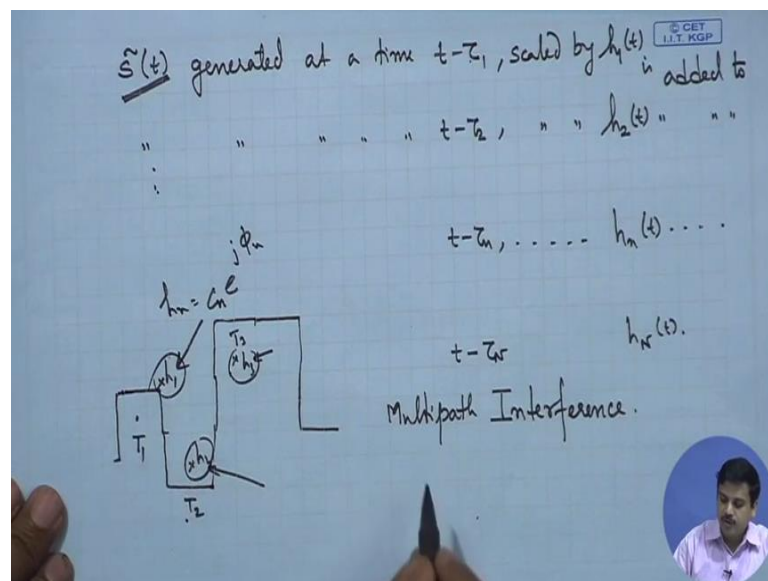 © CET
I.I.T. KGP
s̃(t) generated at a time t-τ₁, scaled by h₁(t) is added to
" " " " " t-τ₂, " " h₂(t) " " "
:
t-τₙ, ..... hₙ(t) ....
hₙ = Cₙ e^{jφₙ}
t-τ_N h_N(t).
T₃
×h₁ ×h₃
Multipath Interference.
T₁
×h₂
T₂